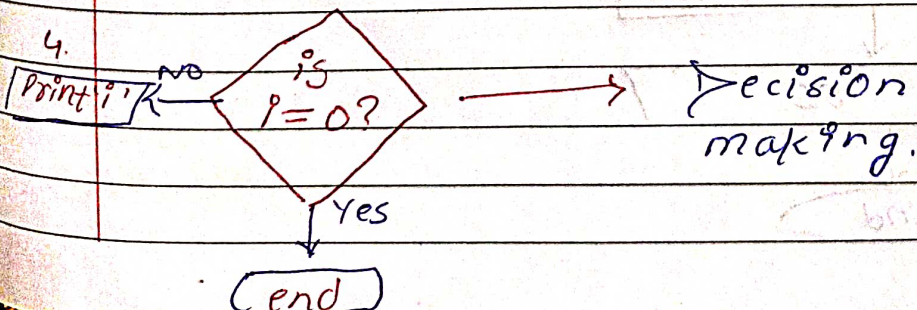 4.
Print 'i'
NO
is
i = 0?
Decision
making.
Yes
end